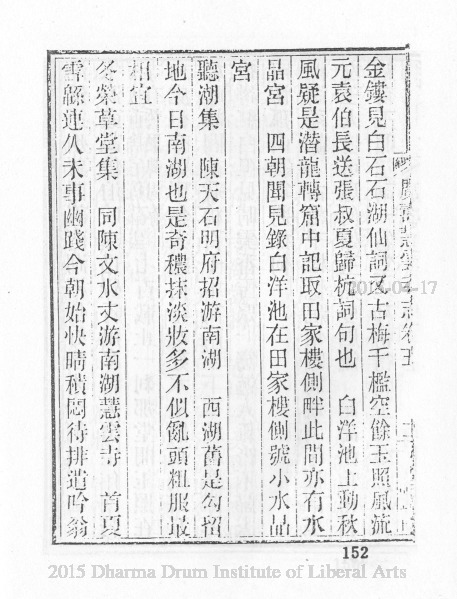 金鏤見白石石湖仙詞又古梅千檻空餘玉照風流
元袁伯長送張叔夏歸杭詞句也　白洋池上動秋
風疑是潛龍轉窟中記取田家樓側畔此間亦有水
品宮　四朝聞見錄白洋池在田家樓側號小水晶
宮
聽潮集　陳天石明府招游南湖　西湖舊是勾留
地今日南湖也是奇穠抹淡妝多不似亂頭粗服最
相宜
冬榮草堂集　同陳文水丈游南湖慧雲寺　首夏
雪緜連久未事幽踐今朝始快晴積悶待排遣吟翁
152
2015-04-17
2015 Dharma Drum Institute of Liberal Arts